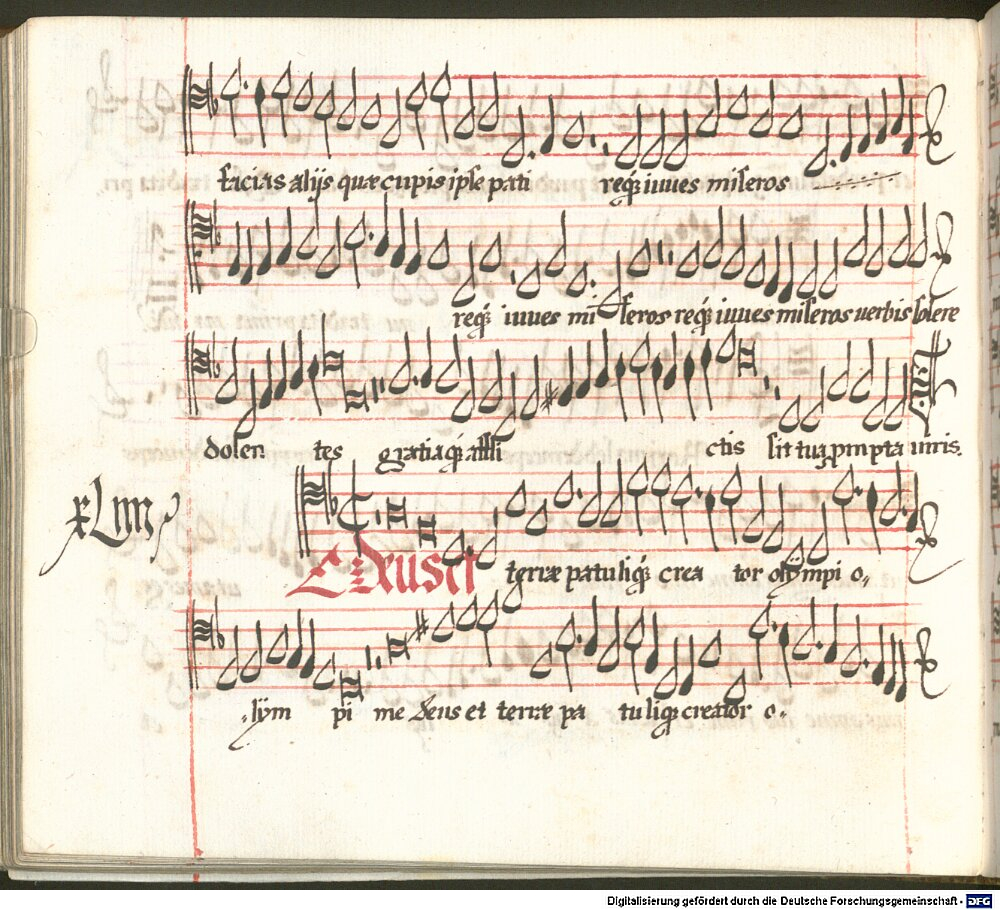 facias alijs quæ cupis ipse pati reqꝫ iuues miseros
reqꝫ iuues mi seros reqꝫ iuues miseros uerbis solere
dolen tes gratia qꝫ afflictis sit tua prompta uiris.
xLiiij
Exusit terræ patuliqꝫ crea tor olympi o,,
,,lym pi me Deus et terræ pa tuliqꝫ creator o,,
Digitalisierung gefördert durch die Deutsche Forschungsgemeinschaft - DFG